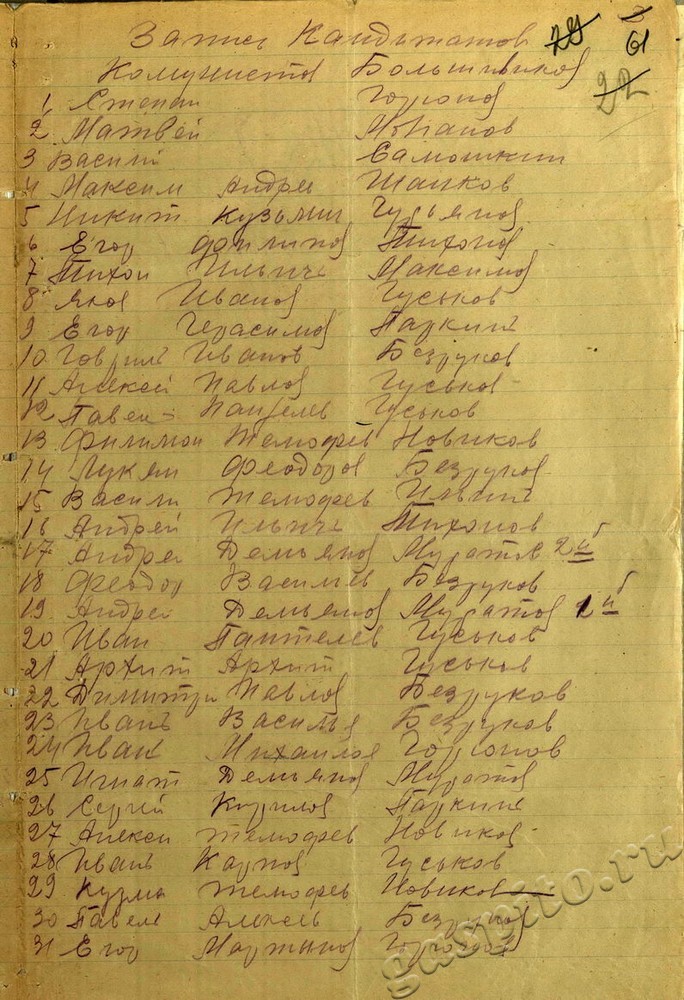 Запись Кандытатов 29 3
Комунистов Большивиков 61
1 Степан Горюнов 22
2 Матвей
3 Васили Самошкин
4 Максим Андрев Шапков
5 Никит Кузьмин Гурьянов
6 Егор Филипов Тихонов
7 Тихон Ильиче Максимов
8 Яков Иванов Гуськов
9 Егор Герасимов Паркинъ
10 Гаврилъ Иванов Безруков
11 Алексей Павлов Гуськов
12 Павел Гуськов
13 Филимон Темофев Новиков
14 Лукян Феодоров Безруков
15 Васили Темофев Ильин
16 Андрей Ильиче Тихонов
17 Андрей Демьянов Муратов 2й
18 Феодор Василев Безруков
19 Андрей Демьянов Муратов 1й
20 Иван Пантелев Гуськов
21 Архип Архип Гуськов
22 Димитри Павлов Безруков
23 Иванъ Василья Безруков
24 Иван Михаилов Горюнов
25 Игнат Демьянов Муратов
26 Сергей Кирилов Паркинъ
27 Алексей Темофев Новиков
28 Иванъ Карпов Гуськов
29 Кузма Темофев Новиков
30 Павел Алексев Безруков
31 Егор Мартынов
gaspito.ru